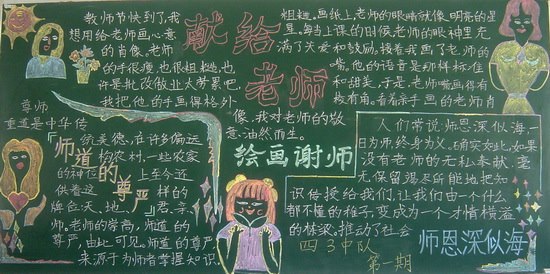 教师节快到了,我
想用给老师画心意
的肖像。老师
的手很瘦,也很粗糙,也
许是批改做业太劳累吧,
我把他的手画得格外
粗糙。画纸上,老师的眼睛就像明亮的星
星,每当上课的时候老师的眼神里充
满了关爱和鼓励,接着我画了老师的
嘴,他的语音是那样标准
和甜美,于是,老师嘴画得有
棱有角。看着亲手画的老师肖
像,我对老师的敬
意油然而生。
献给
老师
绘画谢师
尊师
重道是中华传
统美德,在许多偏远
的农村,一些农家
的神位上至今还
供着这样的
牌位:天、地、君、亲、
师。老师的崇高,师道的
尊严,由此可见。师道的尊严
来源于为师者掌握知识。
『师道的尊严』
人们常说:师恩深似海,一
日为师,终身为父。确实如此,如果
没有老师的无私奉献,毫
无保留,竭尽所能地把知
识传授给我们,让我们由一个什么
都不懂的稚子,变成为一个才情横溢
的栋梁,推动了社会
四3中队
第一期
师恩深似海